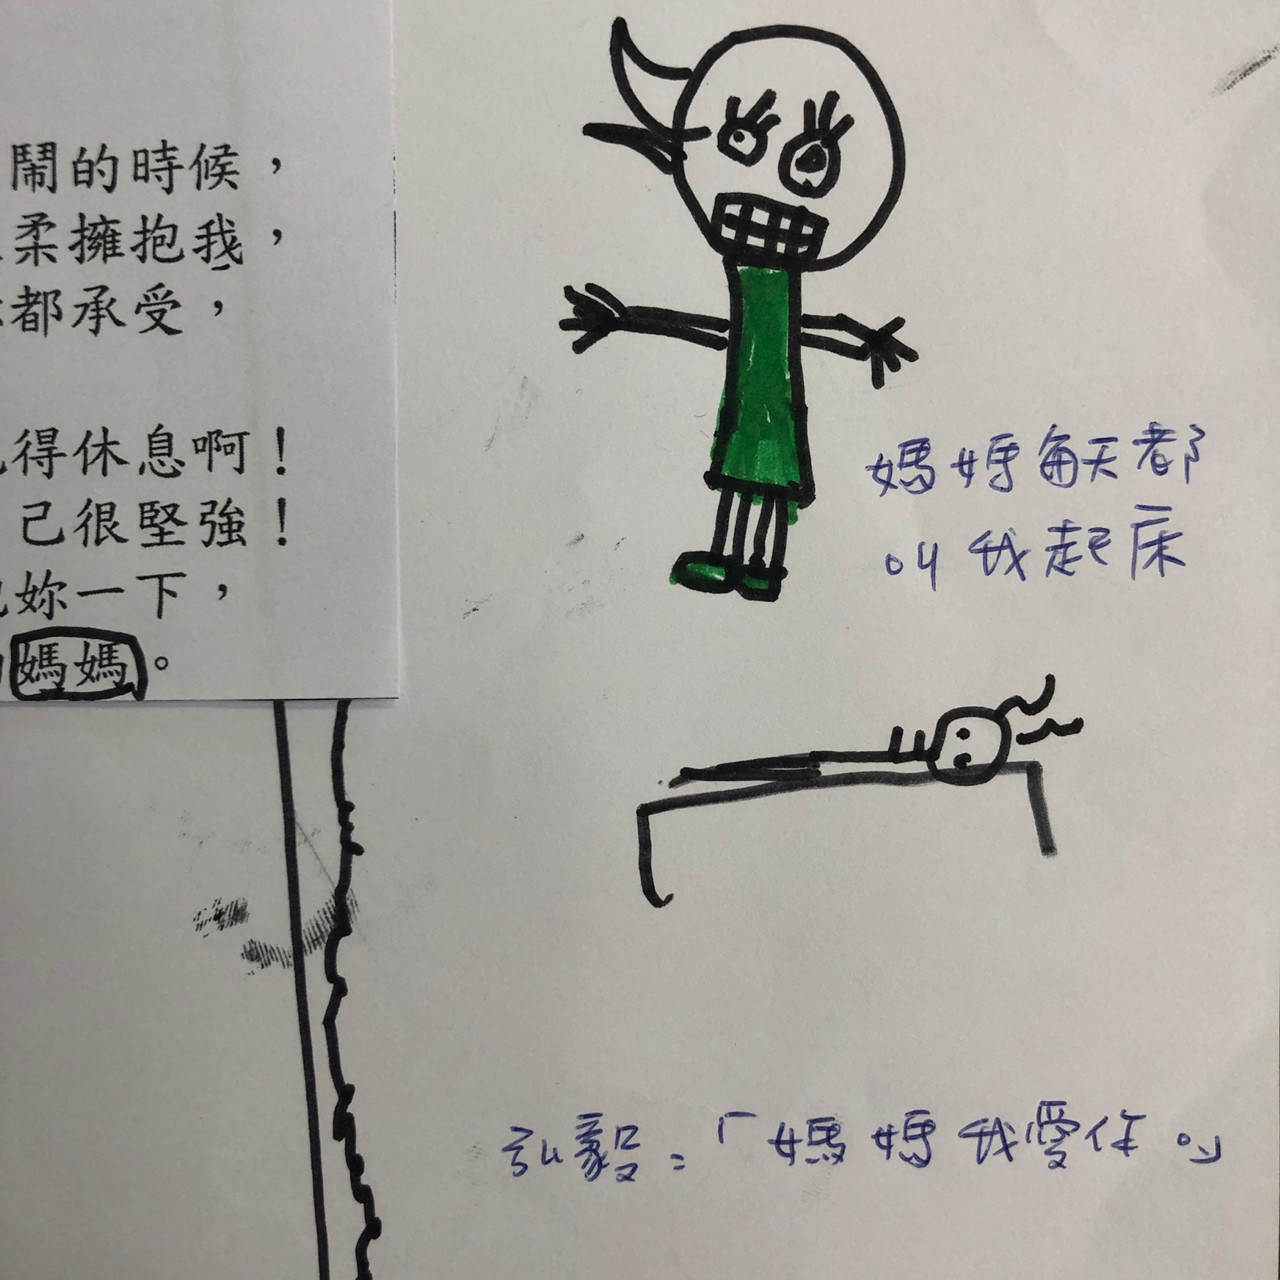 鬧的時候，
柔擁抱我，
都承受，
得休息啊！
己很堅強！
妳一下，
媽媽。
媽媽每天都
叫我起床
弘毅：「媽媽我愛你。」